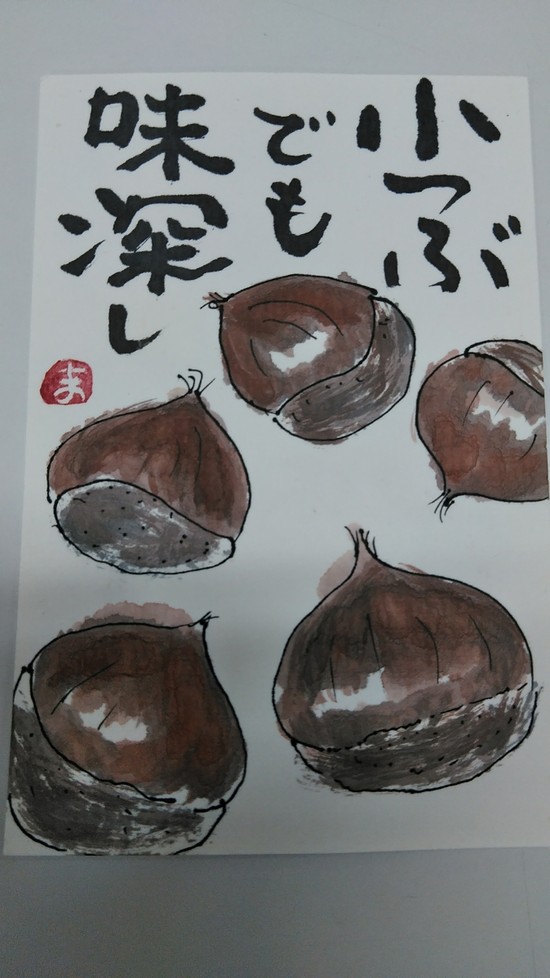 小つぶ
でも
味深し
ま